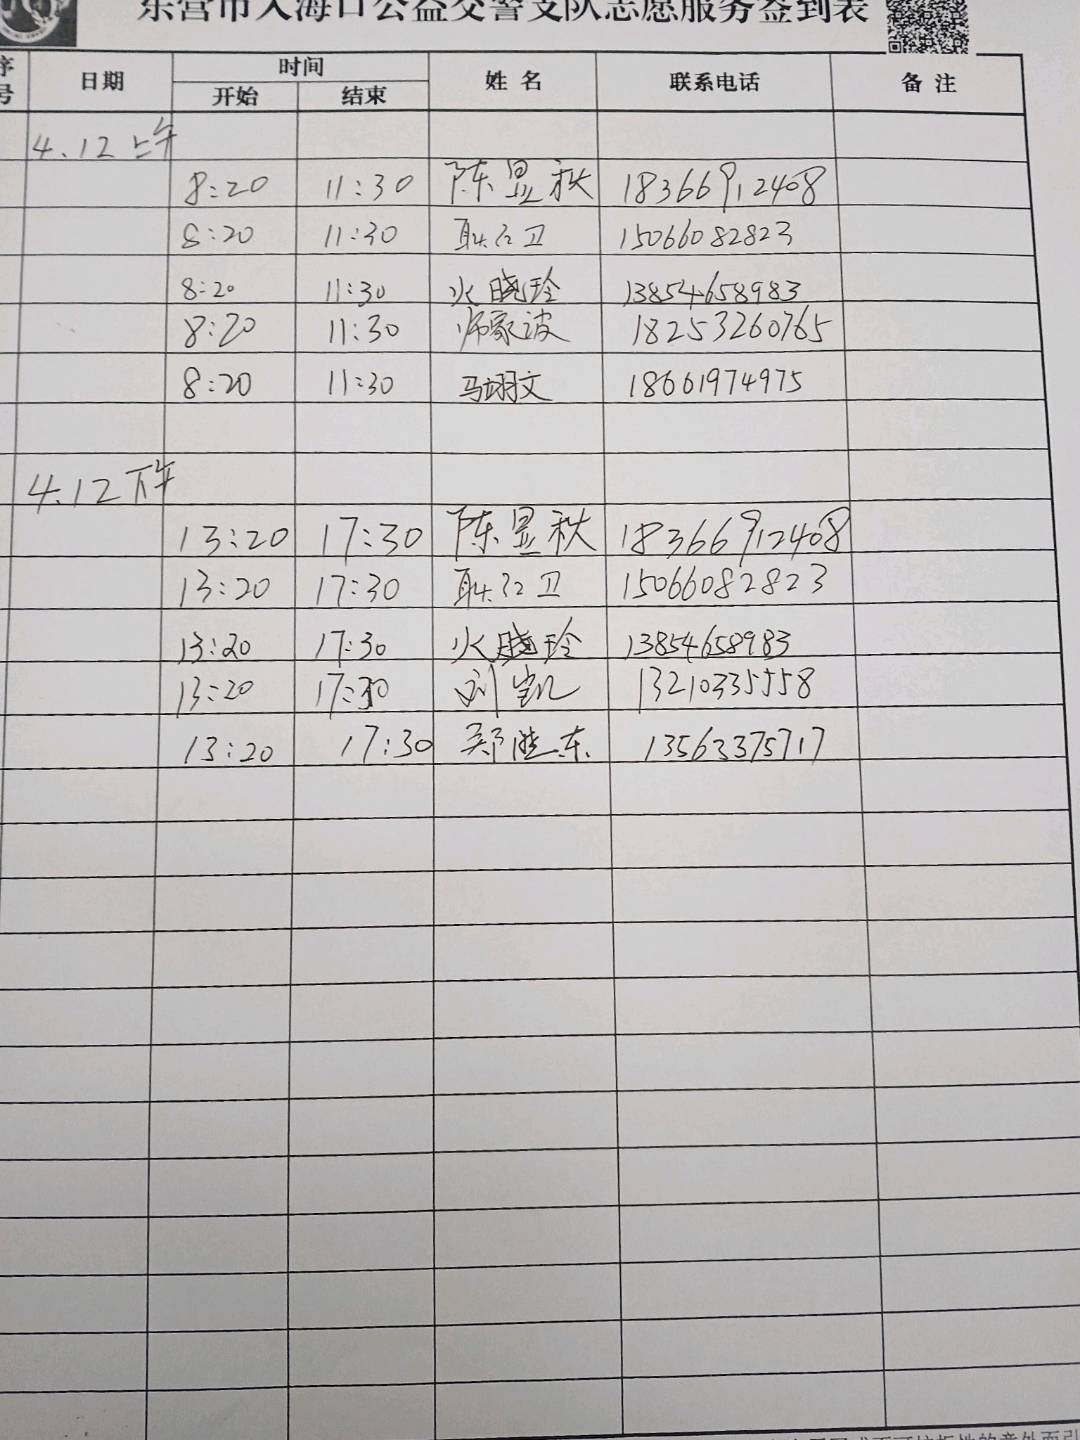 东营市入海口公益交警支队志愿服务签到表
序号 日期 时间 姓名 联系电话 备注
开始 结束
4.12上午
8:20 11:30 陈昱秋 18366912408
8:20 11:30 耿红卫 15066082823
8:20 11:30 火晓玲 13854658983
8:20 11:30 师家波 18253260765
8:20 11:30 马翊文 18661974975
4.12下午
13:20 17:30 陈昱秋 18366912408
13:20 17:30 耿红卫 15066082823
13:20 17:30 火晓玲 13854658983
13:20 17:30 刘凯 13210335558
13:20 17:30 郑胜东 13563375717